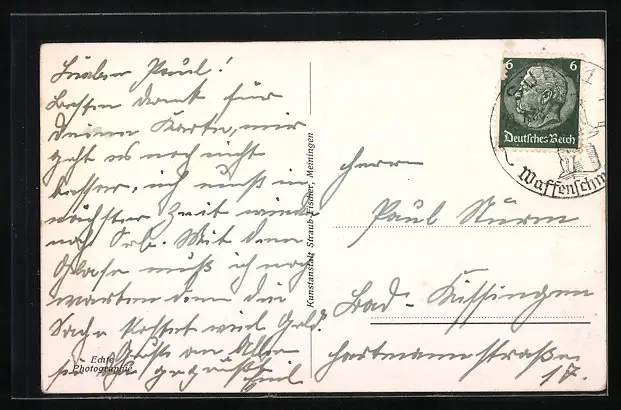 Lieber Paul!
Besten Dank für
Deine Karte, mir
geht es noch nicht
besser, ich muß in
nächster Zeit wieder
nach
Mit dem
muß ich noch
warten denn die
Sache kostet viel Geld.
Gruß an Alle
Emil
Echte
Photographie
Kunstanstalt Straub-Fischer, Meiningen
6 6
Deutsches Reich
Waffenschm
Herrn
Paul Sturm
Bad-Kissingen
Hartmannstraße
17.